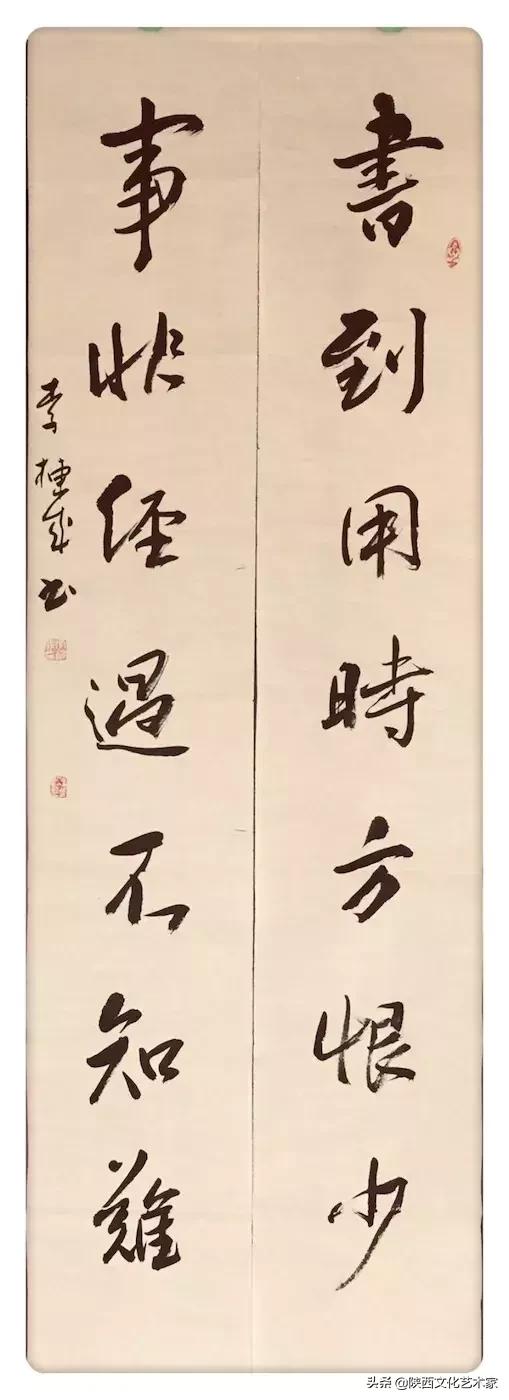 書到用時方恨少
事非經過不知難
李成书
头条 @陕西文化艺术家